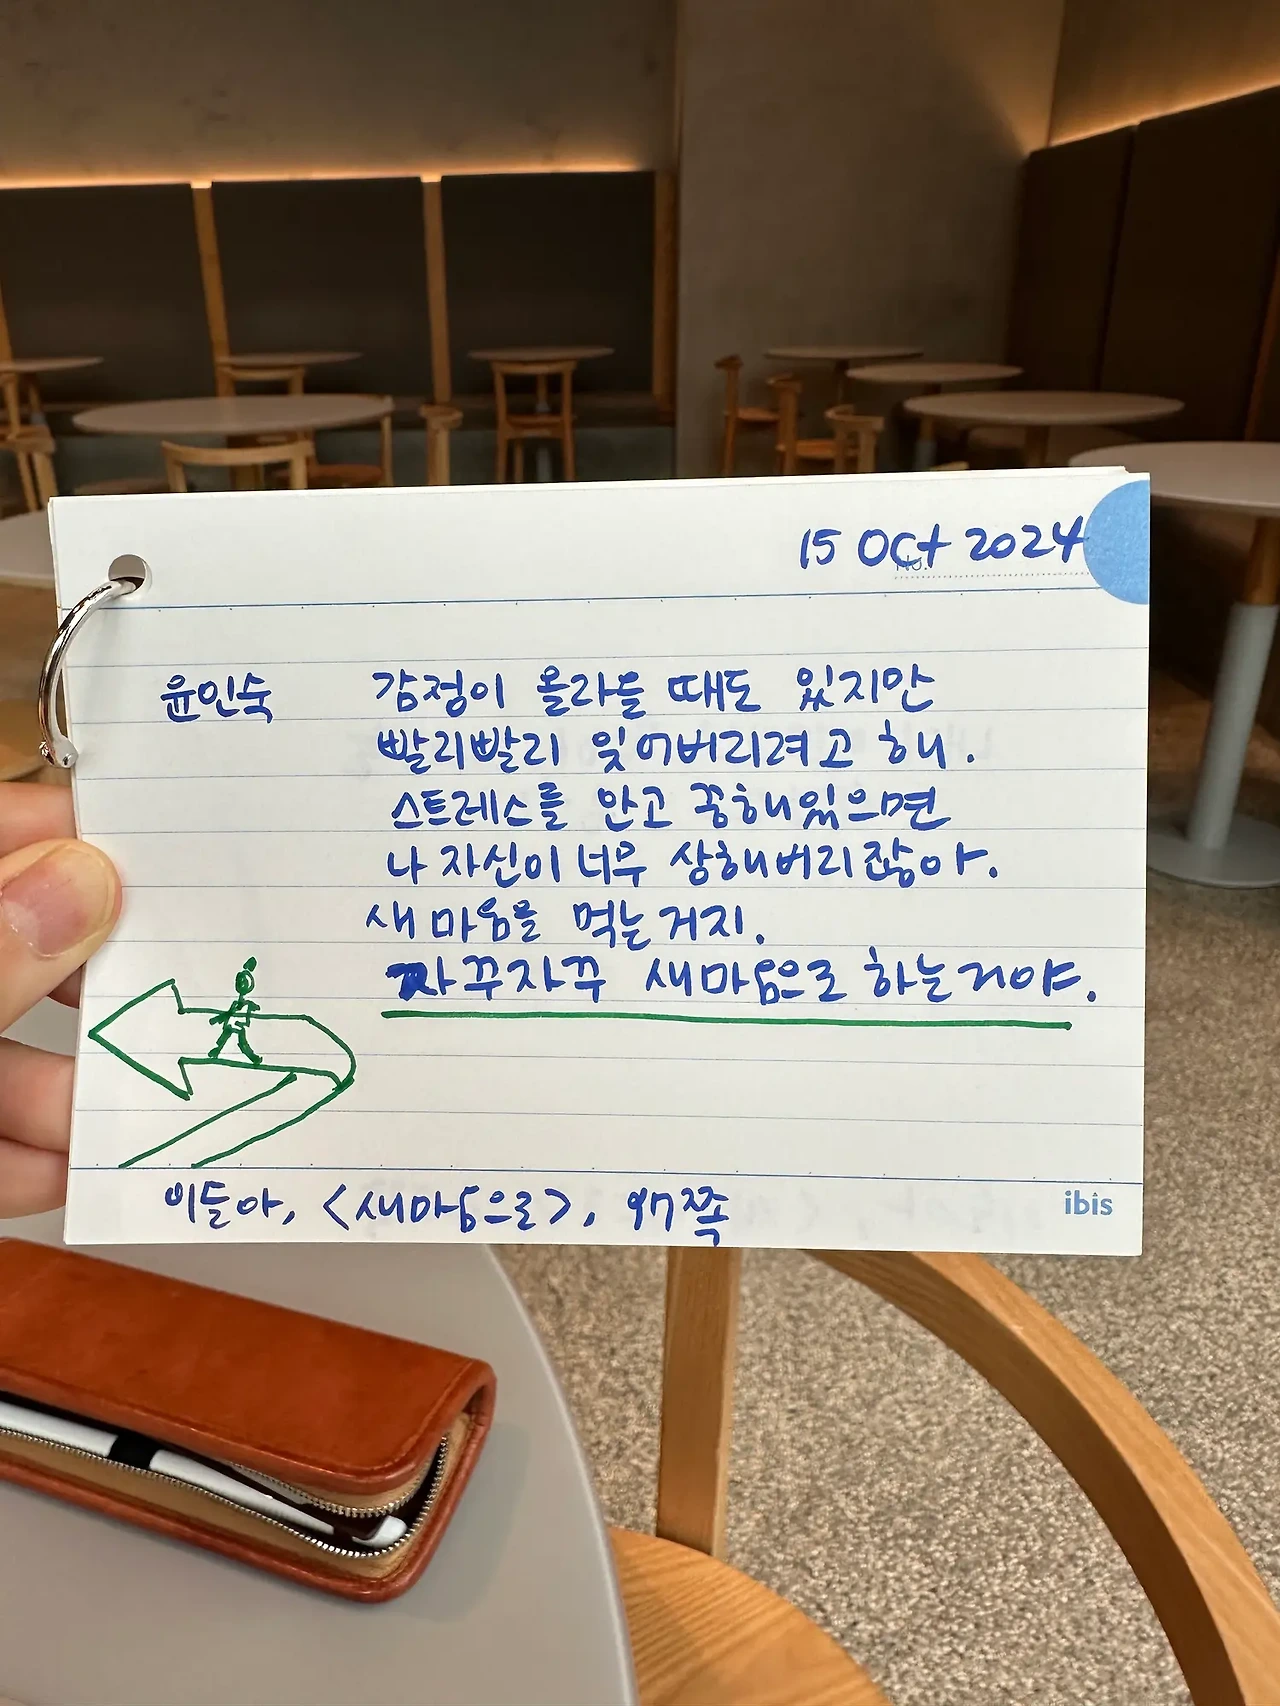 15 Oct 2024
윤인숙 감정이 올라올 때도 있지만
빨리빨리 잊어버리려고 해.
스트레스를 안고 꽁해있으면
나 자신이 너무 상해버리잖아.
새 마음을 먹는거지.
자꾸자꾸 새마음으로 하는거야.
이들아, <새마음으로>, 97쪽
ibis